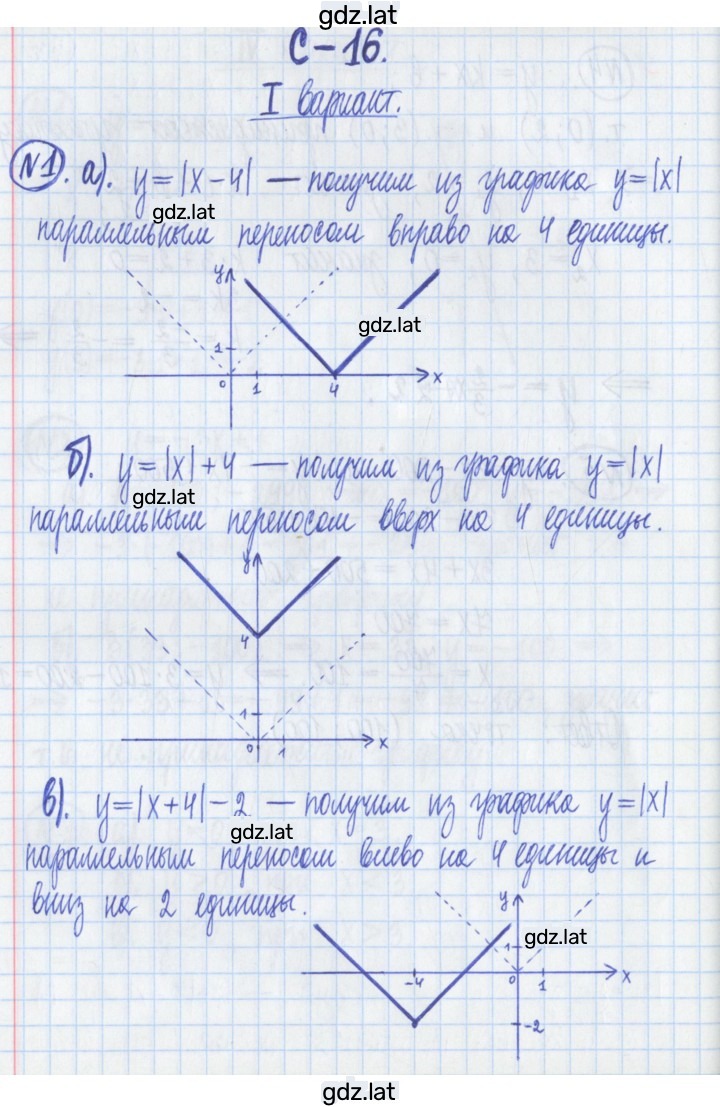 gdz.lat
С-16.
I вариант.
№1. а). y=|x-4| — получим из графика y=|x|
gdz.lat
параллельным переносом вправо на 4 единицы.
y
gdz.lat
1
0 1 4 x
б). y=|x|+4 — получим из графика y=|x|
gdz.lat
параллельным переносом вверх на 4 единицы.
y
4
1
0 1 x
в). y=|x+4|-2 — получим из графика y=|x|
gdz.lat
параллельным переносом влево на 4 единицы и
вниз на 2 единицы.
y
gdz.lat
1
-4 0 1 x
-2
gdz.lat